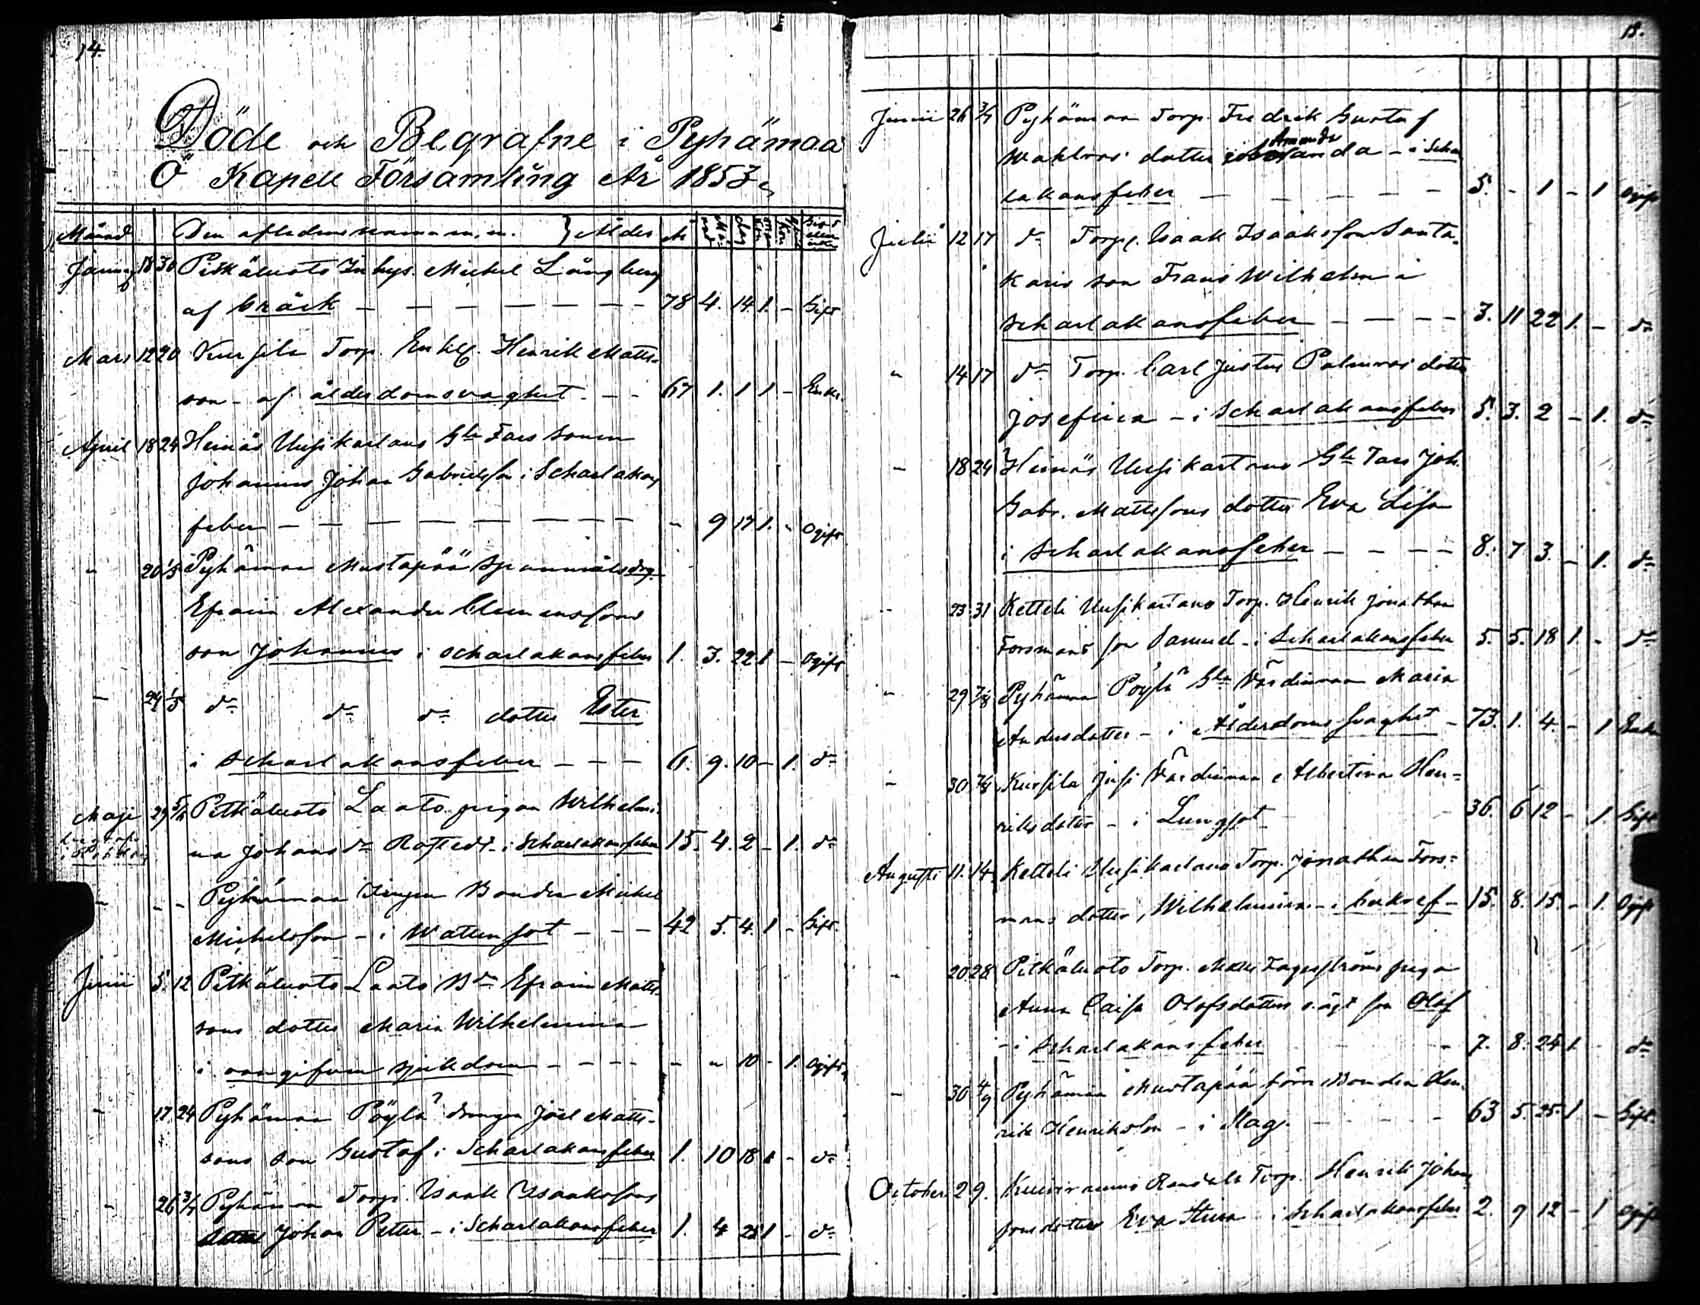 14.
Döde och Begrafne i Pyhämaa
Ö Kapell Församling År 1853
Månad Den aflednes namn m. m. } Ålder År
Januarij 18 30 Pitkäluoto Inhys. Michel Långberg
af bråck — — — — — — 78 4. 14 1. – Gift
Mars 12 20 Kursila Torp. Enkl. Henrik Matts-
son – af ålderdomsvaghet – – 67 1. 1 1 – Enkl.
April 18 24 Heinäs Uusikartano Gla Fars sonen
Johannes Johan Gabrielsson i Scharlakans
feber — — — — — — – 9 17 1. – Ogift
" 20 1/5 Pyhämaa Mustapää Spannmålsdrg.
Efraim Alexander Clemenssons
son Johannes i scharlakansfeber 1. 3. 22 1 – Ogift
– 24 1/5 do do do dotter Ester
i scharlakansfeber – – – 6. 9. 10 – 1. do
Maji 29 5/6 Pitkäluoto Laato pigan Wilhelmi-
na Johansdr – i Scharlakansfeber 15. 4. 2 – 1. do
– – – Pyhämaa Bonden Mickel
Michelsson – i Wattensot – – – 42 5. 4. 1 – Gift.
Junii 5. 12 Pitkäluoto Laato Bdn Efraim Matts-
sons dotter Maria Wilhelmina
i oangifven sjukdom – – – – – " 10 – 1. Ogift
" 17 24 Pyhämaa Pöylä drengen Joel Matts-
sons son Gustaf i Scharlakansfeber 1. 10 18 1 – do
" 26 3/7 Pyhämaa Torp. Isaak Isaakssons
Johan Petter – i Scharlakansfeber 1. 4 25 1 – do
15.
Junii 26 3/7 Pyhämaa Torp. Fredrik Gustaf
Wahlroos dotter Amanda – i Schar
lakansfeber — — — — 5. – 1 – 1 Ogift
Julii 12 17 do Torp. Isaak Isaaksson Santa-
karis son Frans Wilhelm i
scharlakansfeber – – – – 3. 11 22 1. – do
" 14 17 do Torp. Carl Justus Palmroos dotter
Josefina – i Scharlakansfeber 5. 3. 2 – 1. do
– 18 24 Heinäs Uusikartano Gla Fars Joh.
Gabr. Mattssons dotter Eva Lisa
i Scharlakansfeber – – – – 8. 7 3. – 1. do
" 23 31 Ketteli Uusikartano Torp. Henrik Jonathan
Forsmans son Samuel – i Scharlakansfeber 5. 5. 18 1. – do
" 29 7/8 Pyhämaa Pöylä Gla Värdinnan Maria
Andersdotter – i Ålderdomssvaghet – 73. 1. 4. – 1 Enka
– 30 7/8 Kursila Jusi Värdinnan Albertina Hen-
riksdotter – i Lungsot – 36 6 12 – 1 Gift
Augusti 11. 14 Ketteli Uusikartano Torp. Jonathan Fors-
mans dotter, Wilhelmina – i 15. 8. 15. – 1. Ogift
– 20 28 Pitkäluoto Torp. Matts Fagerströms piga
Anna Caisa Olofsdotters o. ägt son Olof
– i Scharlakansfeber – 7. 8. 24 1 – do
– 30 4/9 Pyhämaa Mustapää förre Bonden Hen-
rik Henriksson – i Slag. – – – 63 5. 25. 1 – Gift.
October 2 9. Kuivrauma Torp. Henrik Johans
sons dotter Eva Stina – i Scharlakansfeber 2 9 12 – 1 Ogift